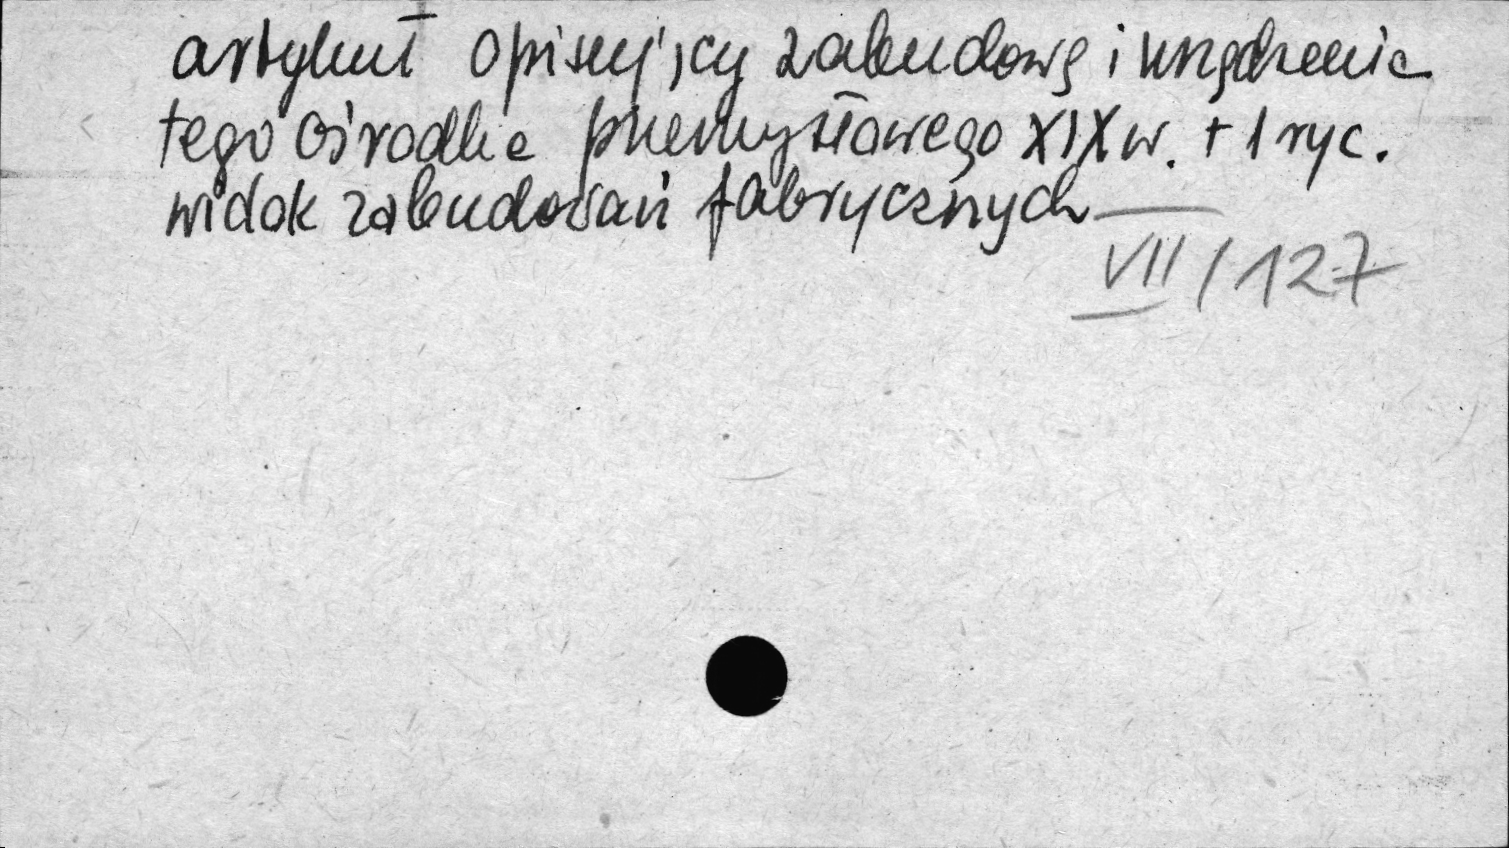 artykuł opisujący zabudowę i urządzenia
tego ośrodka przemysłowego XIX w. + 1 ryc.
widok zabudowań fabrycznych —
VII / 127